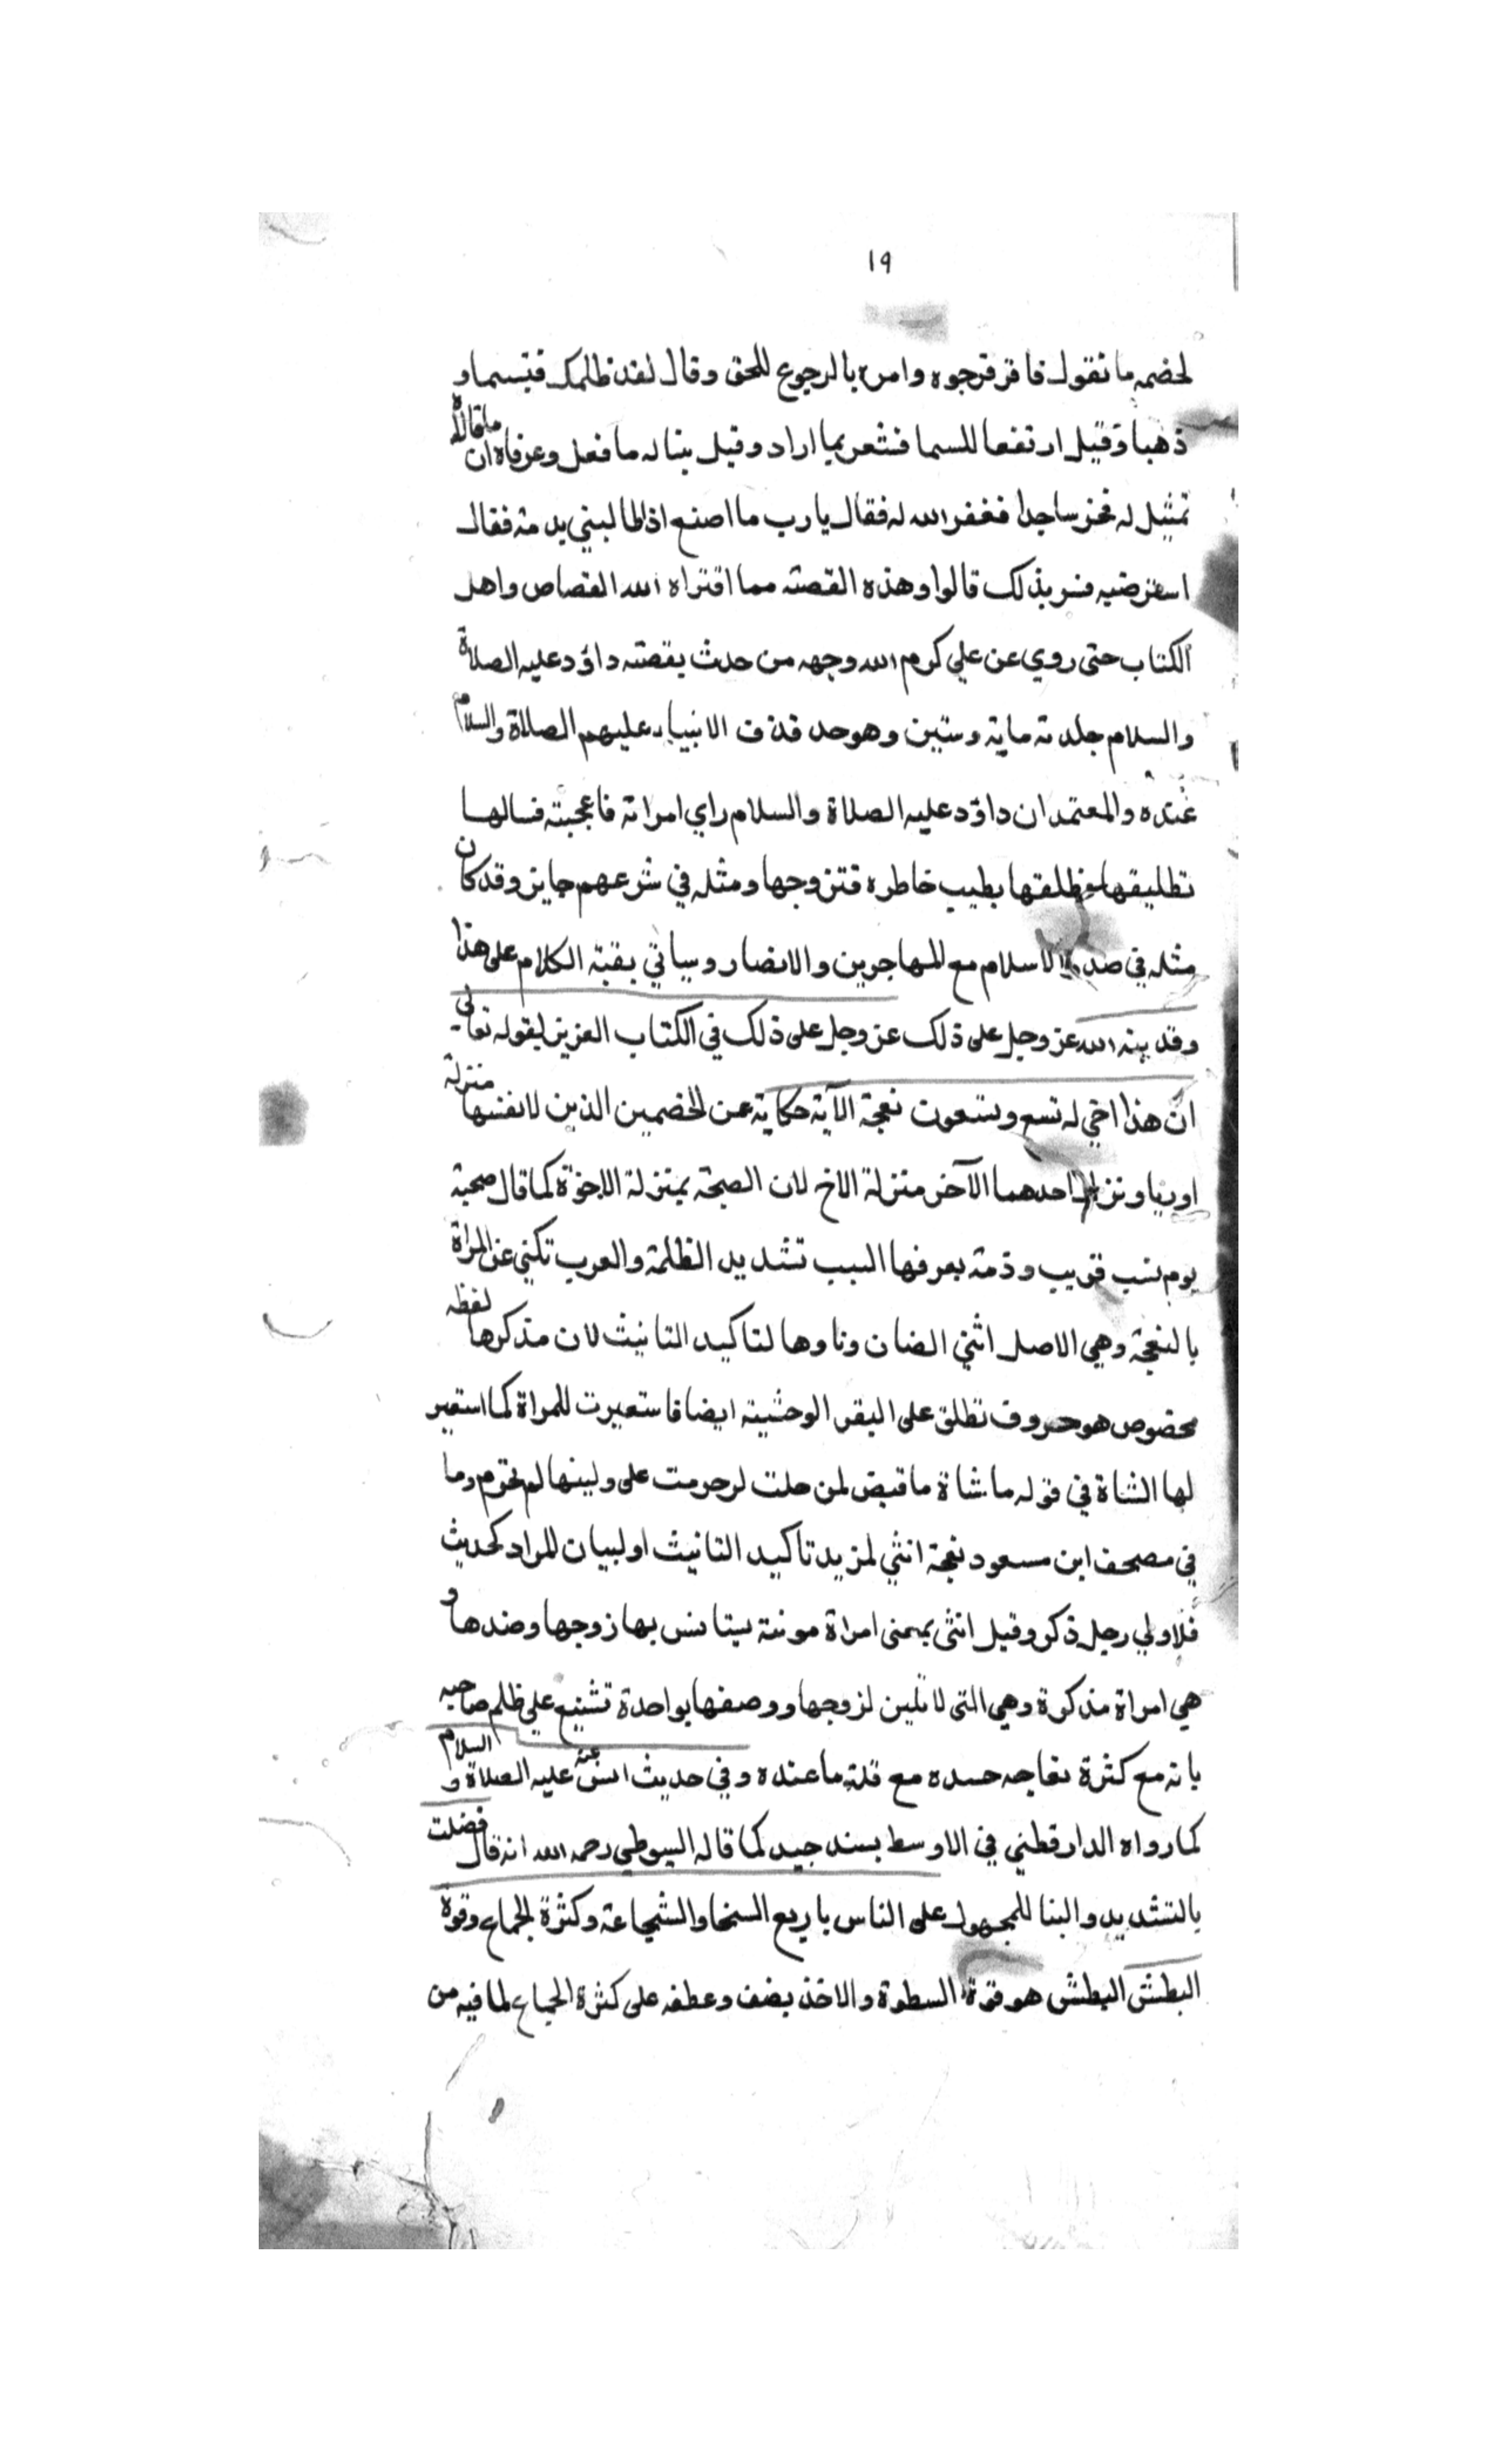 ١٩
لخصمه ما تقول فاقر فرجوه وامره بالرجوع للحق وقال لقد ظلمك فتبسما و
ذهبا وقيل ارتفعا للسما فشعر بما اراد وقيل بينا له ما فعل وعرفاه ان ما قالاه
تمثيل له فخر ساجدا فغفر الله له فقال يا رب ما اصنع اذا طالبني بدمه فقال
استرضيه فسر بذلك قالوا وهذه القصة مما افتراه الله القصاص واهل
الكتاب حتى روي عن علي كرم الله وجهه من حدث بقصة داؤد عليه الصلاة
والسلام جلدته ماية وستين وهو حد قذف الانبياء عليهم الصلاة والسلام
عنده والمعتمد ان داؤد عليه الصلاة والسلام راي امراة فاعجبته فسالها
تطليقها فطلقها بطيب خاطره فتزوجها ومثله في شرعهم جايز وقد كان
مثله في صدر الاسلام مع المهاجرين والانصار وسياتي بقية الكلام على هذا
وقد بينه الله عز وجل على ذلك عز وجل على ذلك في الكتاب العزيز بقوله تعالى
ان هذا اخي له تسع وتسعون نعجة الآية حكاية عن الخصمين الذين لانفسها منزلة
اوريا ونزل احدهما الآخر منزلة الاخ لان الصحبة بمنزلة الاخوة كما قال صحبة
يوم نسب قريب وذمة يعرفها اللبيب تشديد الظلمة والعرب تكني عن المراة
بالنعجة وهي الاصل انثي الضان وتاوها لتاكيد التانيث لان مذكرها لفظه
مخصوص هو خروف تطلق على البقر الوحشية ايضا فاستعيرت للمراة كما استعير
لها الشاة في قوله ما شاة ما قبض لمن حلت له حرمت على وليتها لم تحرم وما
في مصحف ابن مسعود نعجة انثي لمزيد تاكيد التانيث او لبيان المراد كحديث
فلاولي رجل ذكر وقيل انثى بمعنى امراة مونثة يستانس بها زوجها وضدها و
هي امراة مذكرة وهي التى لا تلين لزوجها ووصفها بواحدة تشنيع علي ظلم صاحبه
بانه مع كثرة نعاجه حسده مع قلة ما عنده وفي حديث انس عنه عليه الصلاة والسلام
كما رواه الدارقطني في الاوسط بسند جيد كما قاله السيوطي رحمه الله انه قال فضلت
بالتشديد والبنا للمجهول على الناس باربع السخا والشجاعة وكثرة الجماع وقوة
البطش البطش هو قوة السطوة والاخذ بضف وعطفه على كثرة الجماع لما فيه من